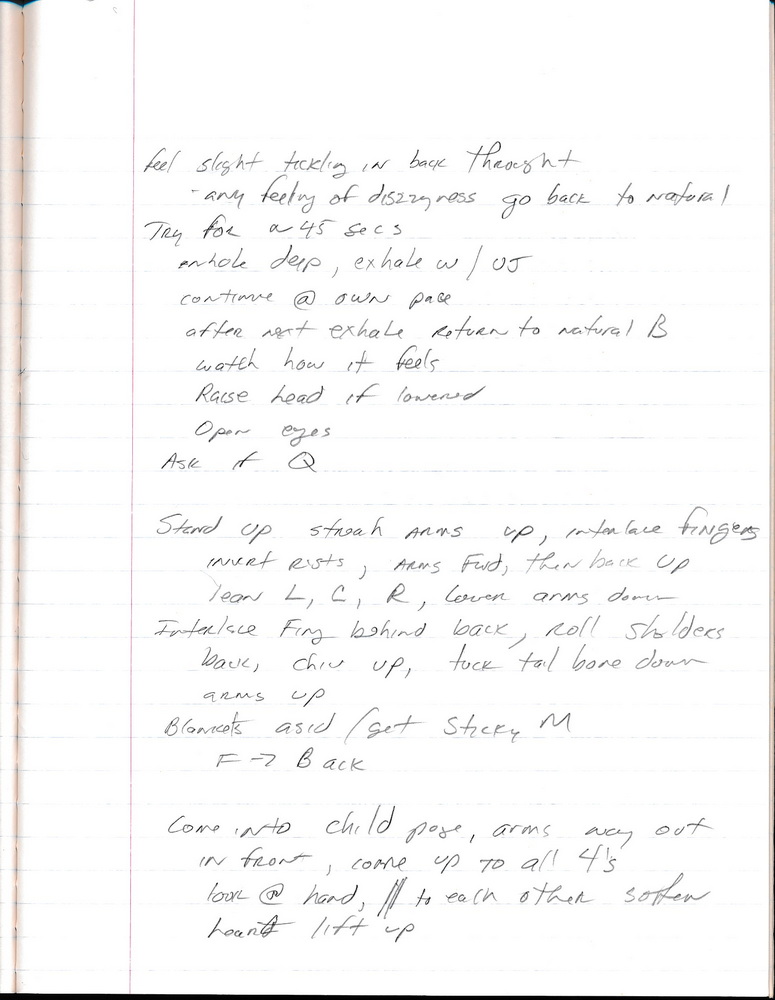 feel slight tickling in back throught
- any feeling of diszzyness go back to natural
Try for ~ 45 secs
enhale deep, exhale w/ UJ
continue @ own pace
after next exhale return to natural B
watch how it feels
Raise head if lowered
Open eyes
Ask if Q
Stand up streah arms up, interlace fingers
invert rists, arms Fwd, then back up
lean L, C, R, lower arms down
Interlace Fing behind back, roll sholders
back, chin up, tuck tail bone down
arms up
Blankets asid / get Sticky M
F → Back
Come into child pose, arms way out
in front, come up to all 4's
look @ hand, || to each other soften
heart lift up